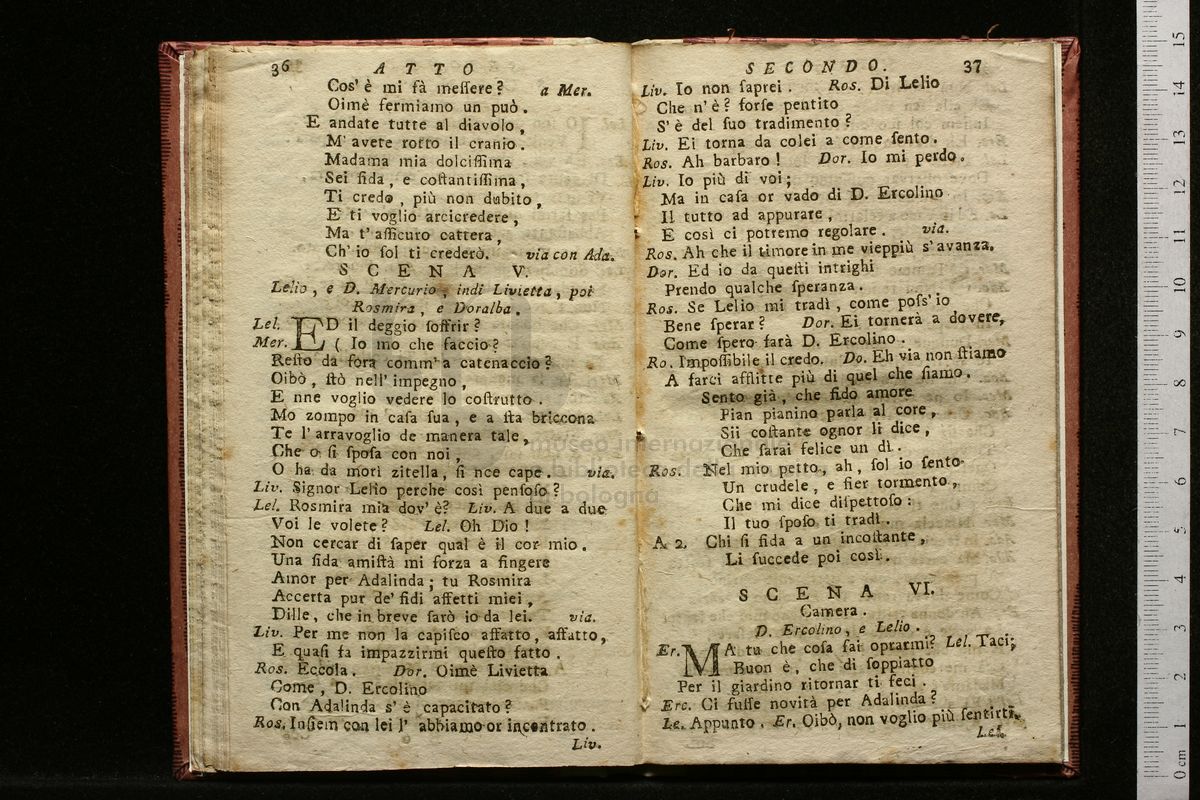 36 ATTO
Cos' è mi fà meſſere? a Mer.
Oimè fermiamo un può.
E andate tutte al diavolo,
M' avete rotto il cranio.
Madama mia dolciſſima
Sei fida, e coſtantiſſima,
Ti credo, più non dubito,
E ti voglio arcicredere,
Ma t' aſſicuro cattera,
Ch' io ſol ti crederò. via con Ada.
SCENA V.
Lelio, e D. Mercurio, indi Livietta, poi
Rosmira, e Doralba.
Lel. ED il deggio ſoffrir?
Mer. ( Io mo che faccio?
Reſto da fora comm' a catenaccio?
Oibò, ſtò nell' impegno,
E nne voglio vedere lo coſtrutto.
Mo zompo in caſa ſua, e a ſta briccona
Te l' arravoglio de manera tale,
Che o ſi ſpoſa con noi,
O ha da morì zitella, ſi nce cape. via.
Liv. Signor Lelio perche così penſoſo?
Lel. Rosmira mia dov' è? Liv. A due a due
Voi le volete? Lel. Oh Dio!
Non cercar di ſaper qual è il cor mio.
Una fida amiſtà mi forza a fingere
Amor per Adalinda; tu Rosmira
Accerta pur de' fidi affetti miei,
Dille, che in breve ſarò io da lei. via.
Liv. Per me non la capiſco affatto, affatto,
E quaſi fa impazzirmi queſto fatto.
Ros. Eccola. Dor. Oimè Livietta
Come, D. Ercolino
Con Adalinda s' è capacitato?
Ros. Inſiem con lei l' abbiamo or incontrato.
Liv.
SECONDO. 37
Liv. Io non ſaprei. Ros. Di Lelio
Che n' è? forſe pentito
S' è del ſuo tradimento?
Liv. Ei torna da colei a come ſento.
Ros. Ah barbaro! Dor. Io mi perdo.
Liv. Io più di voi;
Ma in caſa or vado di D. Ercolino
Il tutto ad appurare,
E così ci potremo regolare. via.
Ros. Ah che il timore in me vieppiù s' avanza.
Dor. Ed io da queſti intrighi
Prendo qualche ſperanza.
Ros. Se Lelio mi tradì, come poſs' io
Bene ſperar? Dor. Ei tornerà a dovere,
Come ſpero farà D. Ercolino.
Ro. Impoſſibile il credo. Do. Eh via non ſtiamo
A farci afflitte più di quel che ſiamo.
Sento già, che fido amore
Pian pianino parla al core,
Sii coſtante ognor li dice,
Che ſarai felice un dì.
Ros. Nel mio petto, ah, ſol io ſento
Un crudele, e fier tormento,
Che mi dice diſpettoſo:
Il tuo ſpoſo ti tradì.
A 2. Chi ſi fida a un incoſtante,
Li ſuccede poi così.
SCENA VI.
Camera.
D. Ercolino, e Lelio.
Er. MA tu che coſa fai oprarmi? Lel. Taci;
Buon è, che di ſoppiatto
Per il giardino ritornar ti feci.
Erc. Ci fuſſe novità per Adalinda?
Le. Appunto. Er. Oibò, non voglio più ſentirti.
Lel.